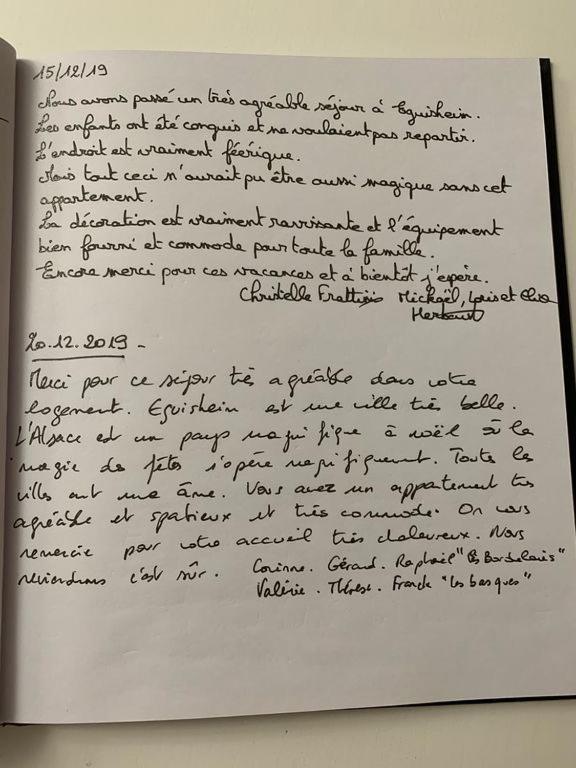 15/12/19
Nous avons passé un très agréable séjour à Eguisheim.
Les enfants ont été conquis et ne voulaient pas repartir.
L'endroit est vraiment féérique.
Mais tout ceci n'aurait pu être aussi magique sans cet
appartement.
La décoration est vraiment ravissante et l'équipement
bien fourni et commode pour toute la famille.
Encore merci pour ces vacances et à bientôt j'espère.
Christelle Mickaël, Loris et
20.12.2019 -
Merci pour ce séjour très agréable dans votre
logement. Eguisheim est une ville très belle.
L'Alsace est un pays magnifique à noël où la
magie des fêtes s'opère magnifiquement. Toutes les
villes ont une âme. Vous avez un appartement très
agréable et spatieux et très commode. On vous
remercie pour votre accueil très chaleureux. Nous
reviendrons c'est sûr. Corinne. Gérard. Raphaël "les Bordelais"
Valérie. Thérèse. Franck "les basques"